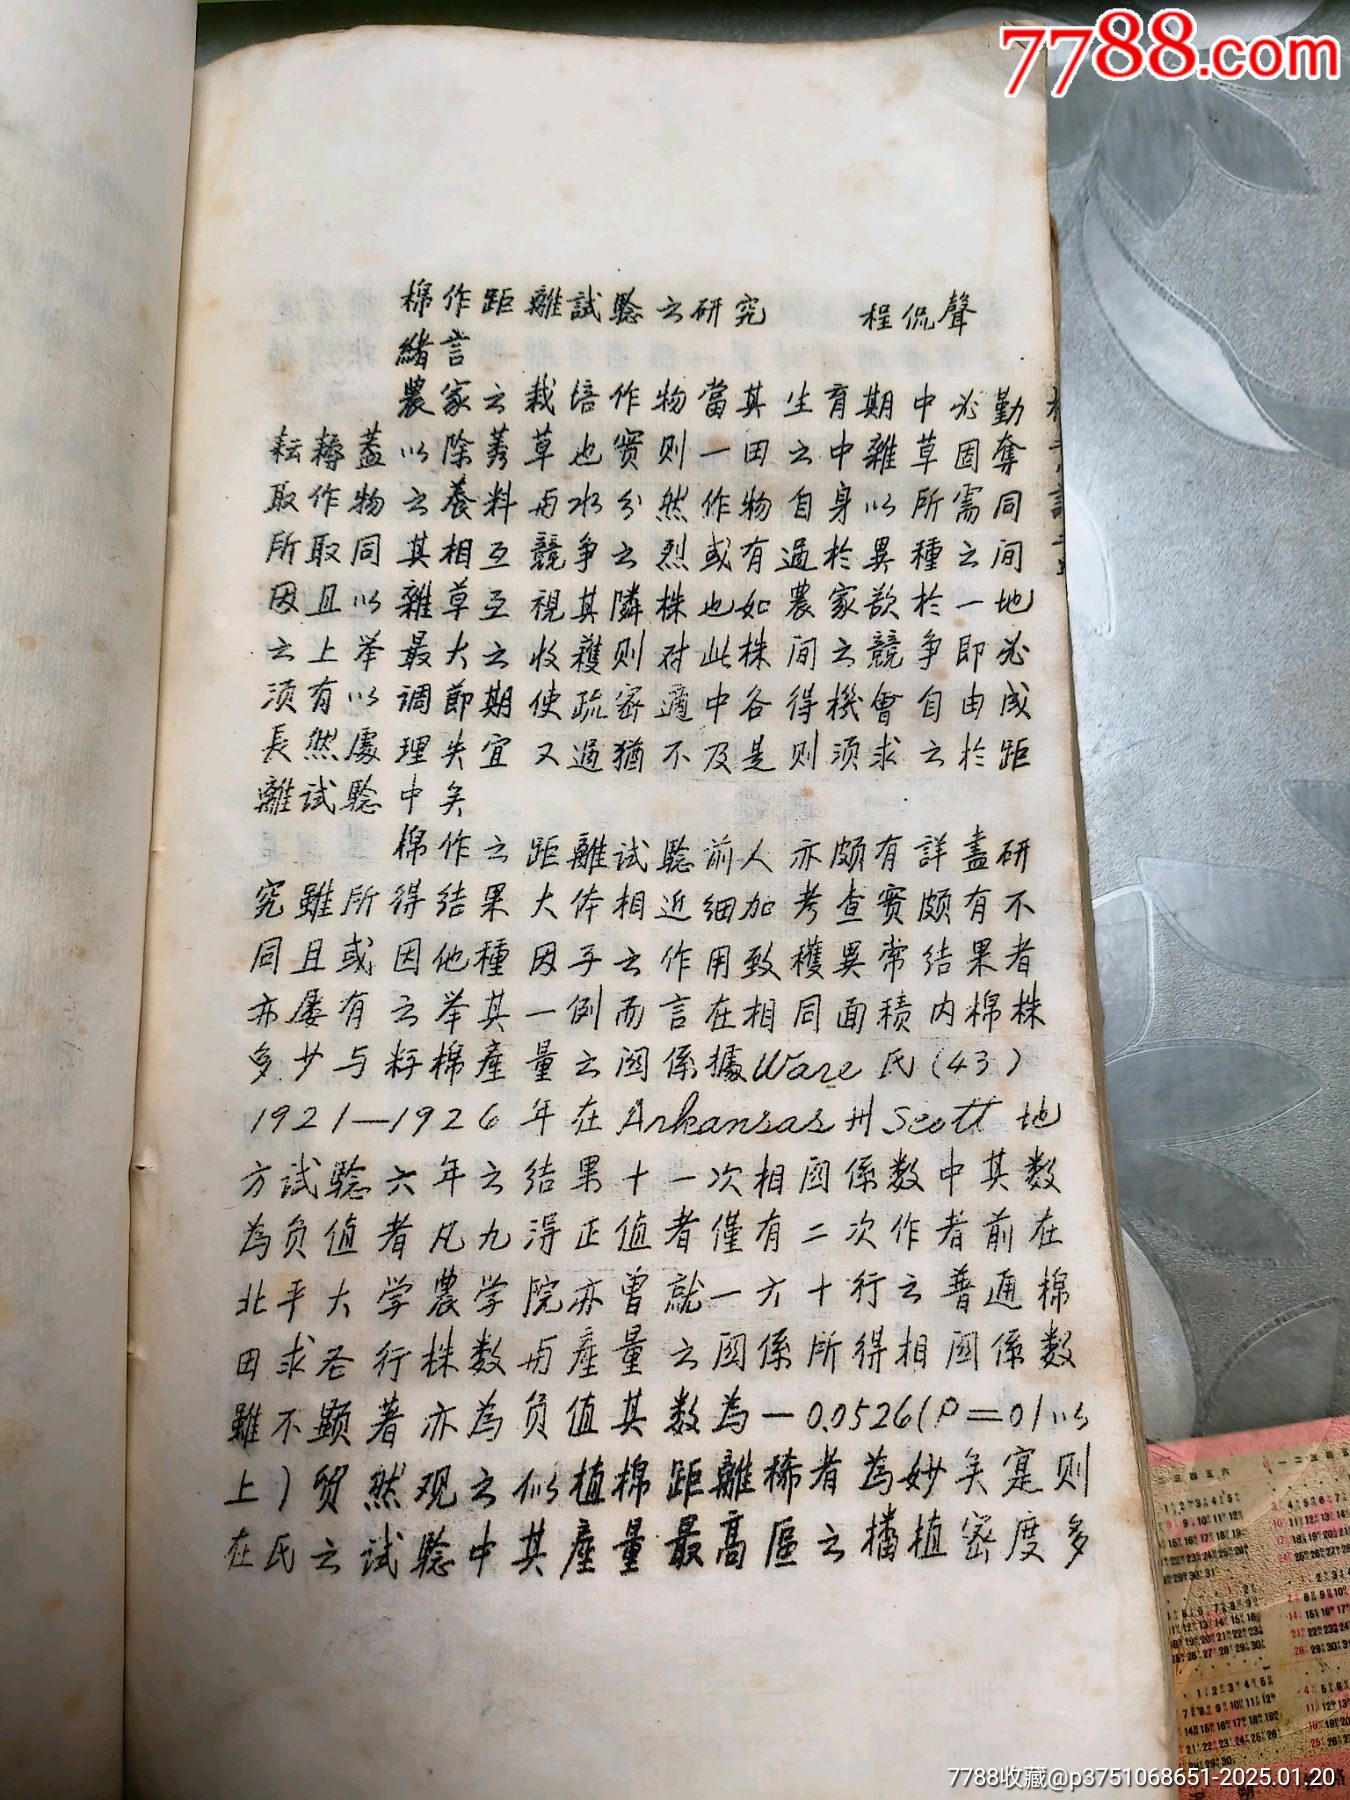 7788.com
棉作距離試驗之研究 程侃聲
緒言
農家之栽培作物當其生育期中必勤
耘耨蓋以除莠草也实则一田之中雜草固奪
取作物之養料与水分然作物自身以所需同
所取同其相互競争之烈或有過於異種之间
因且以雜草互視其隣株也如農家欲於一地
之上举最大之收穫则对此株间之競争即必
须有以调節期使疏密適中各得機會自由成
長然處理失宜又過猶不及是则须求之於距
離试驗中矣
棉作之距離试驗前人亦颇有詳盡研
究雖所得结果大体相近细加考查实颇有不
同且或因他種因子之作用致穫異常结果者
亦屡有之举其一例而言在相同面積内棉株
多少与籽棉產量之関係據Ware氏(43)
1921—1926年在Arkansas州Scott地
方试驗六年之结果十一次相関係数中其数
為负值者凡九得正值者僅有二次作者前在
北平大学農学院亦曾就一六十行之普通棉
田求各行株数与產量之関係所得相関係数
雖不顕著亦為负值其数為—0.0526(P=01以
上)贸然观之似植棉距離稀者為妙矣寔则
在氏之试驗中其產量最高區之播植密度多
7788收藏@p3751068651-2025.01.20